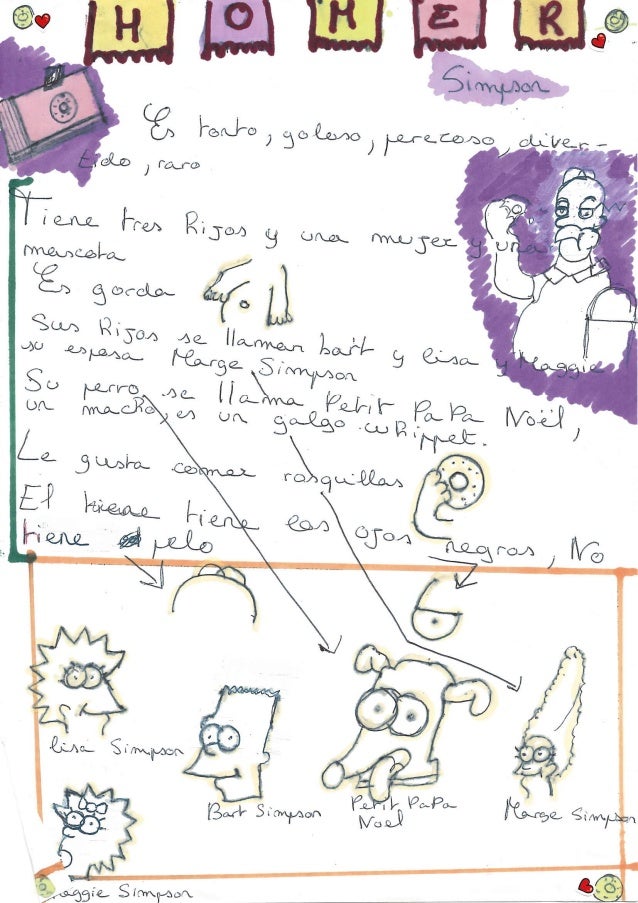 HOMER
Simpson
Es tonto, goloso, perezoso, diver-
tido, raro
Tiene tres Hijos y una mujer y una
mascota
Es gorda
Sus Hijos se llaman bart y lisa y Maggie
su esposa Marge Simpson
Su perro se llama Petit PaPa Noël,
un macho, es un galgo whippet.
Le gusta comer rosquillas
El tiene tiene los ojos negros, No
tiene pelo
lisa Simpson
Bart Simpson
Petit PaPa
Noël
Marge Simpson
aggie Simpson